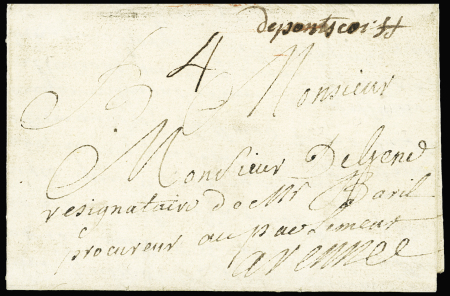 depontscorff
4
Monsieur
Monsieur
resignataire de Mr Baril
procureur au parlement
arenne